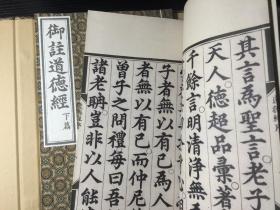 御註道德經
下篇
其言為聖言老子
天人德超品彙著
千餘言明清淨無
子者無以有己為人
者無以有己而仲尼
曾子之問禮每曰吾
諸老聃豈非以人能